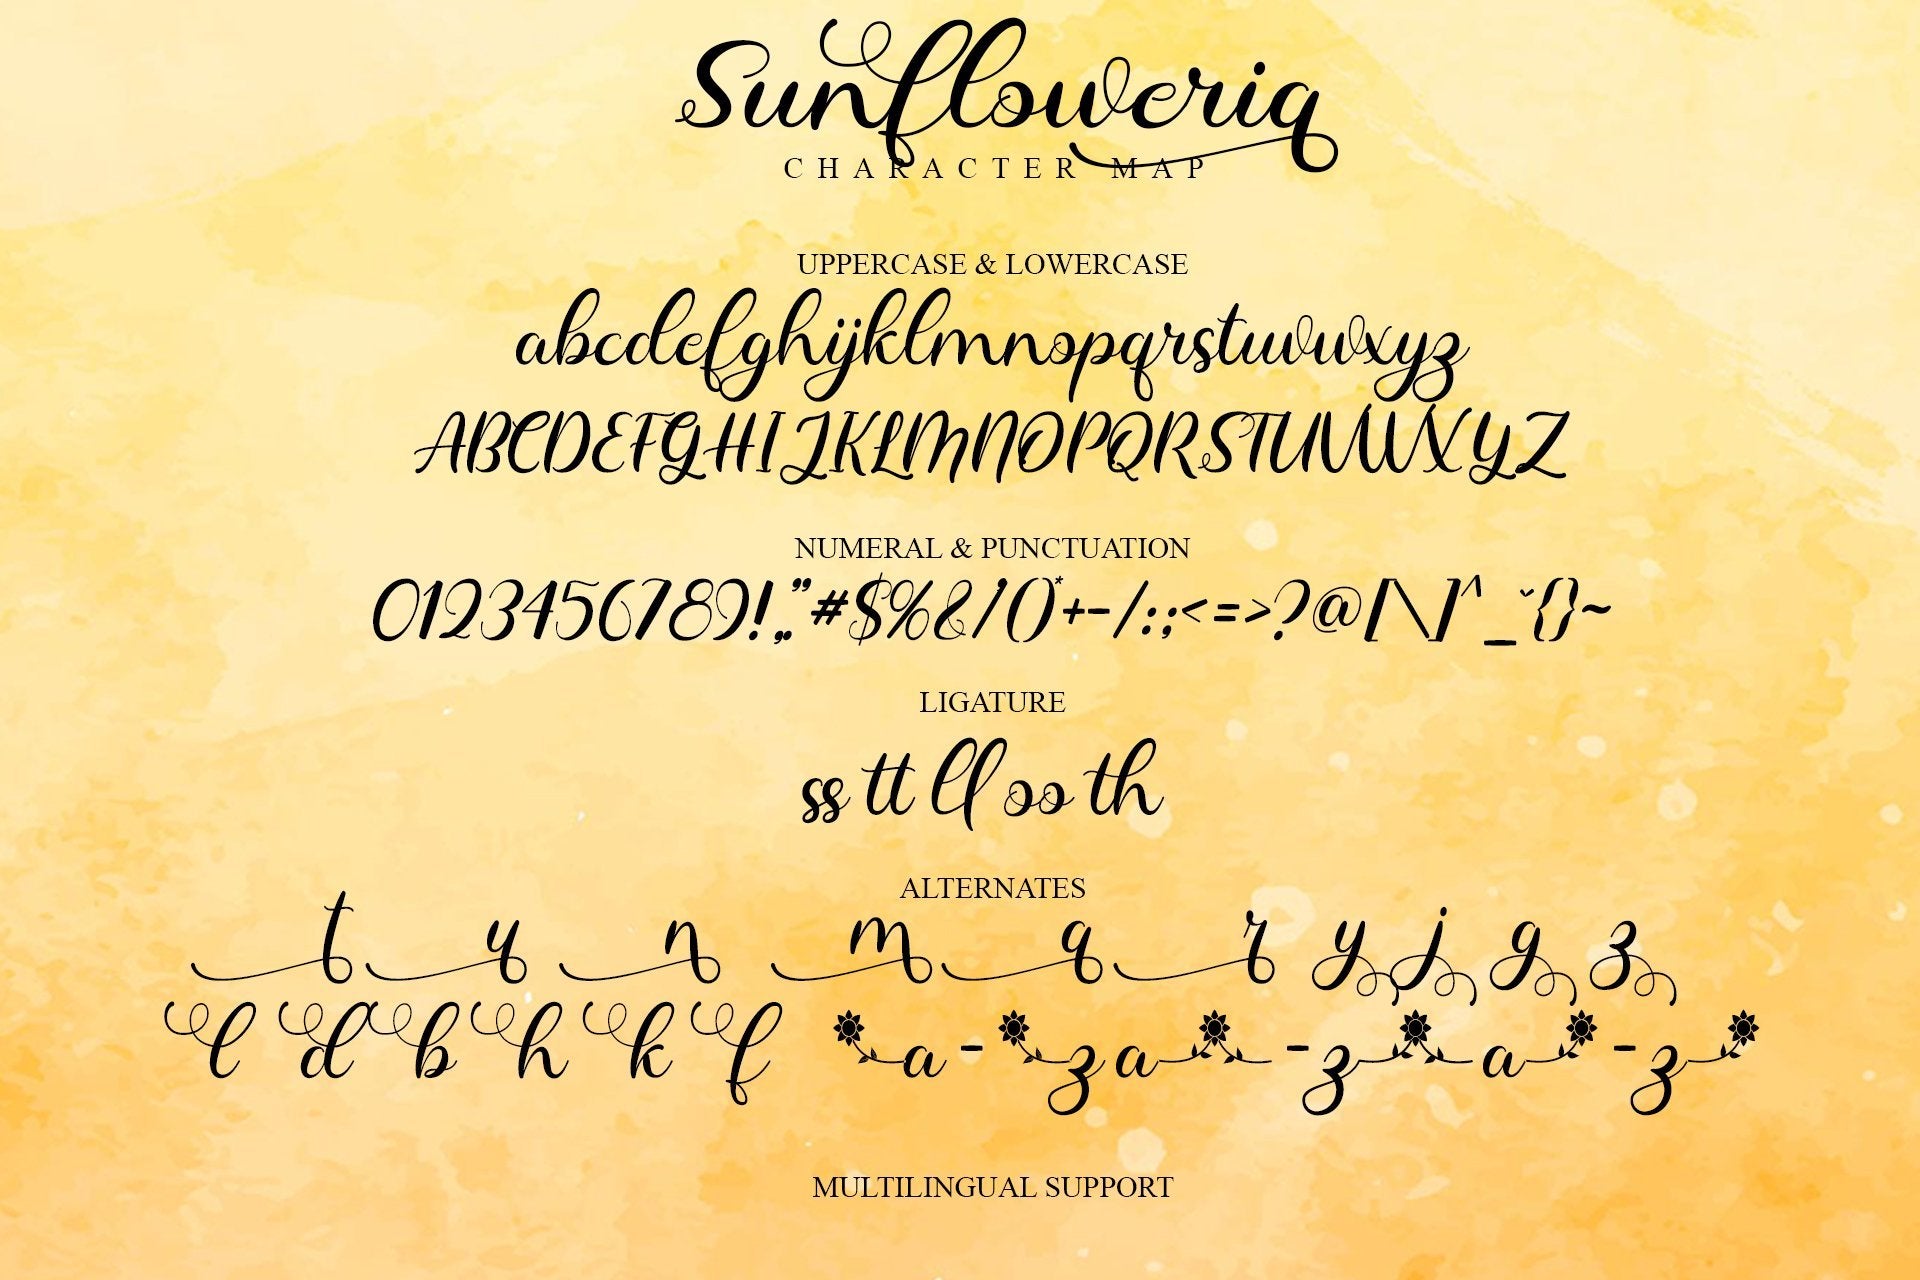 Sunfloweria
CHARACTER MAP
UPPERCASE & LOWERCASE
abcdefghijklmnopqrstuvwxyz
ABCDEFGHIJKLMNOPQRSTUVWXYZ
NUMERAL & PUNCTUATION
0123456789!,."#$%&/'()*+-/:;<=>?@[\]^_ˇ{}~
LIGATURE
ss tt ll oo th
ALTERNATES
t u n m a r y j g z
l d b h k f a - z a - z a - z
MULTILINGUAL SUPPORT